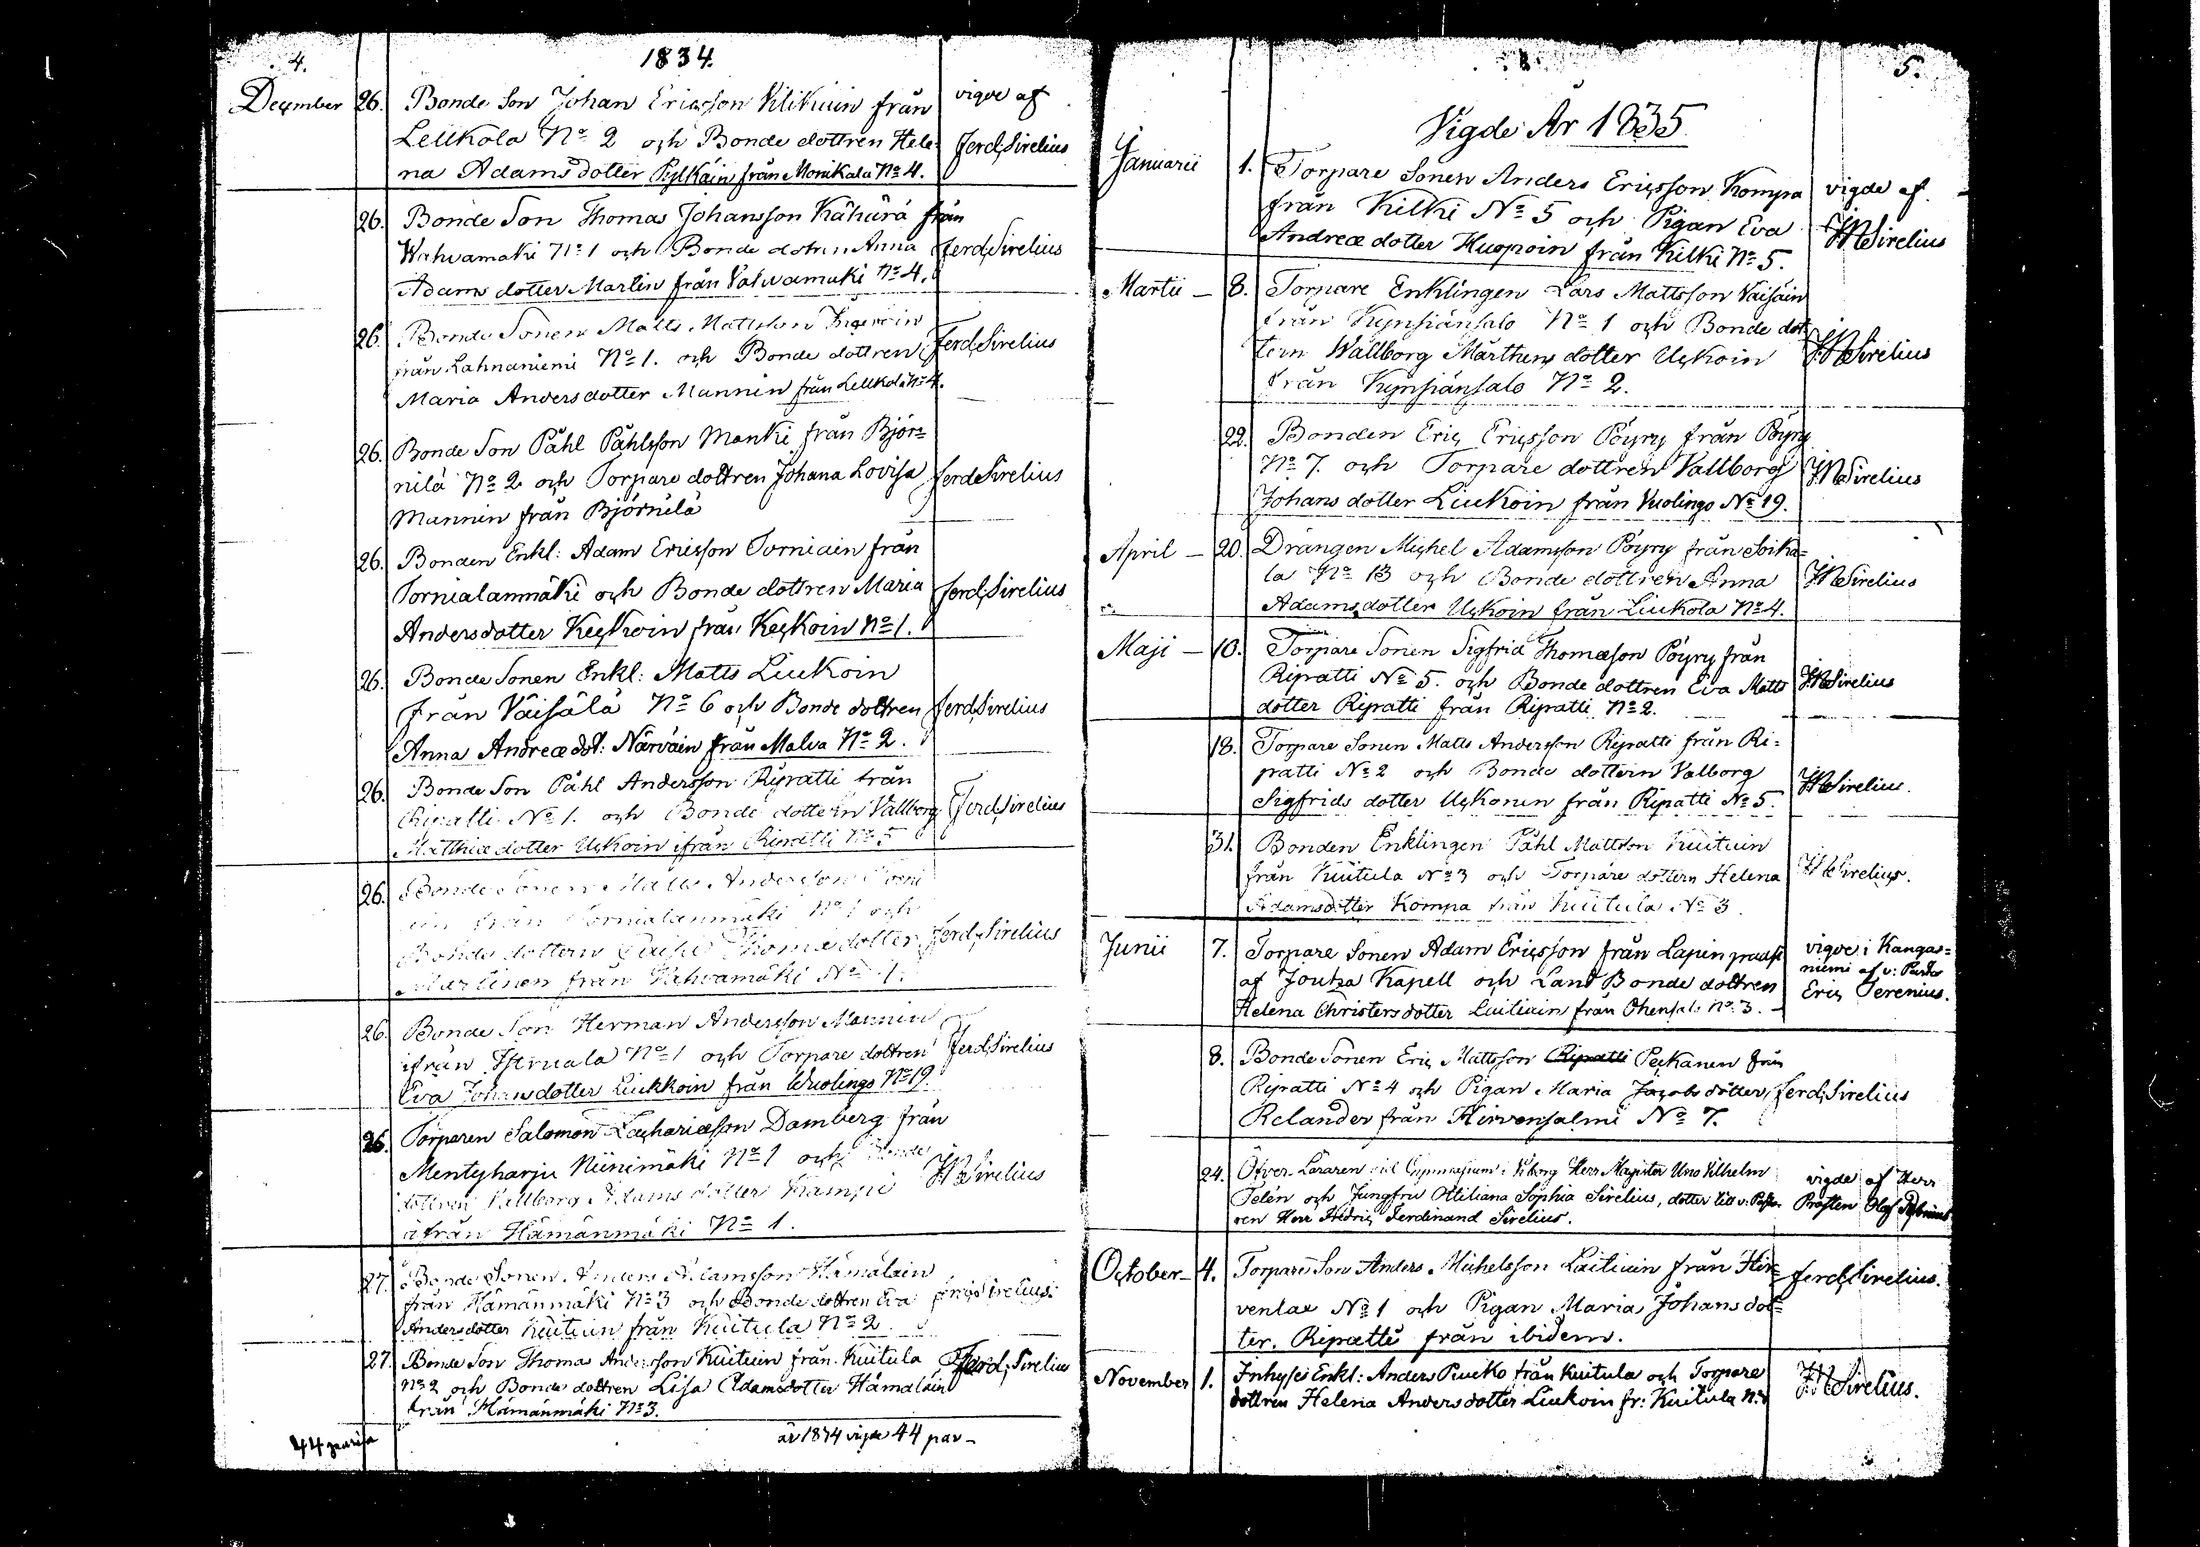 4.
1834.
December 26. Bonde Son Johan Ericsson Kilikuin från
Leukola No 2 och Bonde dottren Hele-
na Adamsdotter Pylkäin från Monikala No 4.
vigde af
Ferd. Sirelius
26. Bonde Son Thomas Johansson Kähärä från
Wahvamäki No 1 och Bonde dottren Anna
Adams dotter Martin från Vahvamäki No 4.
Ferd. Sirelius
26. Bonde Sonen Matts Mattsson
från Lahnaniemi No 1. och Bonde dottren
Maria Andersdotter Mannin från Leukola No 4.
Ferd. Sirelius
26. Bonde Son Påhl Påhlsson Manki från Björ-
nilä No 2 och Torpare dottren Johana Lovisa
Mannin från Björnilä
Ferd. Sirelius
26. Bonden Enkl: Adam Ericsson Torniain från
Tornialanmäki och Bonde dottren Maria
Andersdotter Keckoin från Keckoin No 1.
Ferd. Sirelius
26. Bonde Sonen Enkl: Matts Liukoin
från Väisälä No 6 och Bonde dottren
Anna Andreæ dot: Närväin från Malva No 2.
Ferd. Sirelius
26. Bonde Son Påhl Andersson Ripatti från
Ripatti No 1. och Bonde dottern Vallborg
Matthiæ dotter Uckoin ifrån Ripatti No 5
Ferd. Sirelius
26. Bonde Sonen Matts Andersson
från Tornialanmäki No 1 och
Bonde dottern Thomæ dotter
Martinen från Vahvamäki No 1.
Ferd. Sirelius
26. Bonde Son Herman Andersson Mannin
ifrån No 1 och Torpare dottren
Eva Johansdotter Liukkoin från Wuolingo No 19.
Ferd. Sirelius
26. Torparen Salomon Zachariæson Damberg från
Mentyharju Niinimäki No 1 och Bonde
dottren Vallborg Adams dotter
ifrån Hämänmäki No 1.
Sirelius
27. Bonde Sonen Anders Adamsson Hämäläin
från Hämänmäki No 3 och Bonde dottren Eva
Andersdotter Kuitiuin från Kuitula No 2
Sirelius.
27. Bonde Son Thomas Andersson Kuitiuin från Kuitula
No 2 och Bonde dottren Lisa Adamsdotter Hämäläin
från Hämänmäki No 3.
Ferd. Sirelius
44 paaria
år 1834 vigde 44 par
5.
Vigde År 1835.
Januarii 1. Torpare Sonen Anders Ericsson Kompa
från Kilki No 5 och Pigan Eva
Andreæ dotter Huopoin från Kilki No 5.
vigde af
Sirelius
Martii 8. Torpare Enklingen Lars Mattsson Väisäin
från Kynsiänsalo No 1 och Bonde dot-
tern Wallborg Mårthens dotter Uckoin
från Kynsiänsalo No 2.
Sirelius
22. Bonden Eric Ericsson Pöyry från Pöyry
No 7. och Torpare dottren Vallborg
Johans dotter Liukoin från Vuolingo No 19.
Sirelius
April 20. Drängen Michel Adamsson Pöyry från Soika-
la No 13 och Bonde dottren Anna
Adamsdotter Uckoin från Liukola No 4.
Sirelius
Maji 10. Torpare Sonen Sigfrid Thomæson Pöyry från
Ripatti No 5. och Bonde dottren Eva Matts
dotter Ripatti från Ripatti No 2.
Sirelius
18. Torpare Sonen Matts Andersson Ripatti från Ri-
patti No 2 och Bonde dottern Valborg
Sigfrids dotter Uckonen från Ripatti No 5.
Sirelius.
31. Bonden Enklingen Påhl Mattsson Kuitiuin
från Kuitula No 3 och Torpare dottern Helena
Adamsdotter Kompa från Kuitula No 3.
Sirelius.
Junii 7. Torpare Sonen Adam Ericsson från Lapin
af Joutza Kapell och Land Bonde dottren
Helena Christersdotter Luitiuin från Ohensalo No 3.
vigde i Kangas-
niemi af v: Pastor
Eric Serenius.
8. Bonde Sonen Eric Mattsson Ripatti Peckanen från
Ripatti No 4 och Pigan Maria Jacobs dotter
Relander från Hirvensalmi No 7.
Ferd. Sirelius
24. Öfver Läraren vid Gymnasium i Viborg Herr Magister Uno Vilhelm
Telen och Jungfru Ottiliana Sophia Sirelius, dotter till v: Pasto-
ren Herr Fredric Ferdinand Sirelius.
vigde af Herr
Prosten Olof
October 4. Torpare Son Anders Michelsson Laitiuin från Hir-
venlax No 1 och Pigan Maria Johansdot-
ter. Ripatti från ibidem.
Ferd. Sirelius.
November 1. Inhyses Enkl: Anders Puucko från Kuitula och Torpare
dottren Helena Andersdotter Liukoin fr: Kuitula No
Sirelius.